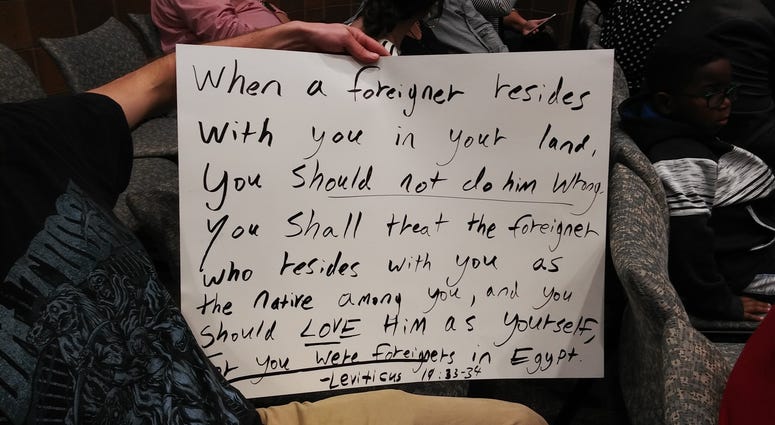 When a foreigner resides
With you in your land,
You should not do him wrong.
You Shall treat the foreigner
who resides with you as
the native among you, and you
should LOVE Him as yourself,
For you were foreigners in Egypt.
-Leviticus 19:33-34